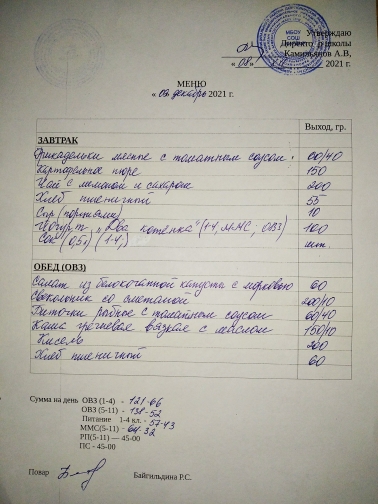 Утверждаю
Директор школы
Камильянов А.В,
«08» 2021 г.
МБОУ
СОШ
МЕНЮ
« 08 декабрь 2021 г.
Выход, гр.
ЗАВТРАК
Фрикадельки мясные с томатным соусом. 60/40
Картофельное пюре 150
Чай с лимоном и сахаром 200
Хлеб пшеничный 55
Сыр (порциями) 10
Йогурт „Два котёнка" (1-4, ММС; ОВЗ) 100
Сок (0,5л) (1-4,) шт.
ОБЕД (ОВЗ)
Салат из белокочанной капусты с морковью 60
Свекольник со сметаной 200/10
Биточки рыбные с томатным соусом 60/40
Каша гречневая вязкая с маслом 150/10
Кисель 200
Хлеб пшеничный 60
Сумма на день ОВЗ (1-4) - 121-66
ОВЗ (5-11) - 138-52
Питание 1-4 кл. - 57-43
ММС(5-11) - 64-32
РП(5-11) — 45-00
ПС - 45-00
Повар Байгильдина Р.С.